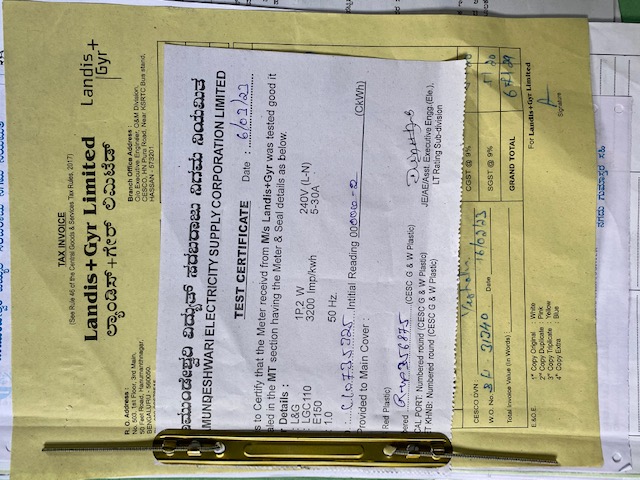 TAX INVOICE
(See Rule 46 of the Central Goods & Services Tax Rules, 2017)
Landis+Gyr Limited
ಲ್ಯಾಂಡಿಸ್+ಗೀರ್ ಲಿಮಿಟೆಡ್
Landis+
Gyr
R. O. Address :
No. 503, 1st Floor, 3rd Main,
50 Feet Road, Hanumanthnagar,
BENGALURU - 560050.
Branch Office Address :
O/o Executive Engineer, O&M Division,
CESCO, LHS Pura Road, Near KSRTC Bus stand,
HASSAN - 573201
ಮುಂಡೇಶ್ವರಿ ವಿದ್ಯುತ್ ಸರಬರಾಜು ನಿಗಮ ನಿಯಮಿತ
MUNDESHWARI ELECTRICITY SUPPLY CORPORATION LIMITED
TEST CERTIFICATE
Date :
s to Certify that the Meter receivd from M/s Landis+Gyr was tested good it
aled in the MT section having the Meter & Seal details as below.
Details :
L&G 1P,2 W 240V (L-N)
LGC110 3200 Imp/kwh 5-30A
E150
1.0 50 Hz.
Initial Reading (CkWh)
Provided to Main Cover :
Red Plastic)
(CESC G & W Plastic)
CAL PORT: Numbered round (CESC G & W Plastic)
T KHNB: Numbered round (CESC G & W Plastic)
JE/AE/Asst. Executive Engg.(Ele.),
LT Rating Sub-division
CESCO DVN :
W.O. No. Date 16/02/23
CGST @ 9%
SGST @ 9%
Total Invoice Value (in Words) :
GRAND TOTAL
E.&O.E.
1st Copy Original : White
2nd Copy Duplicate : Pink
3rd Copy Triplicate : Yellow
4th Copy Extra : Blue
For Landis+Gyr Limited
Signature